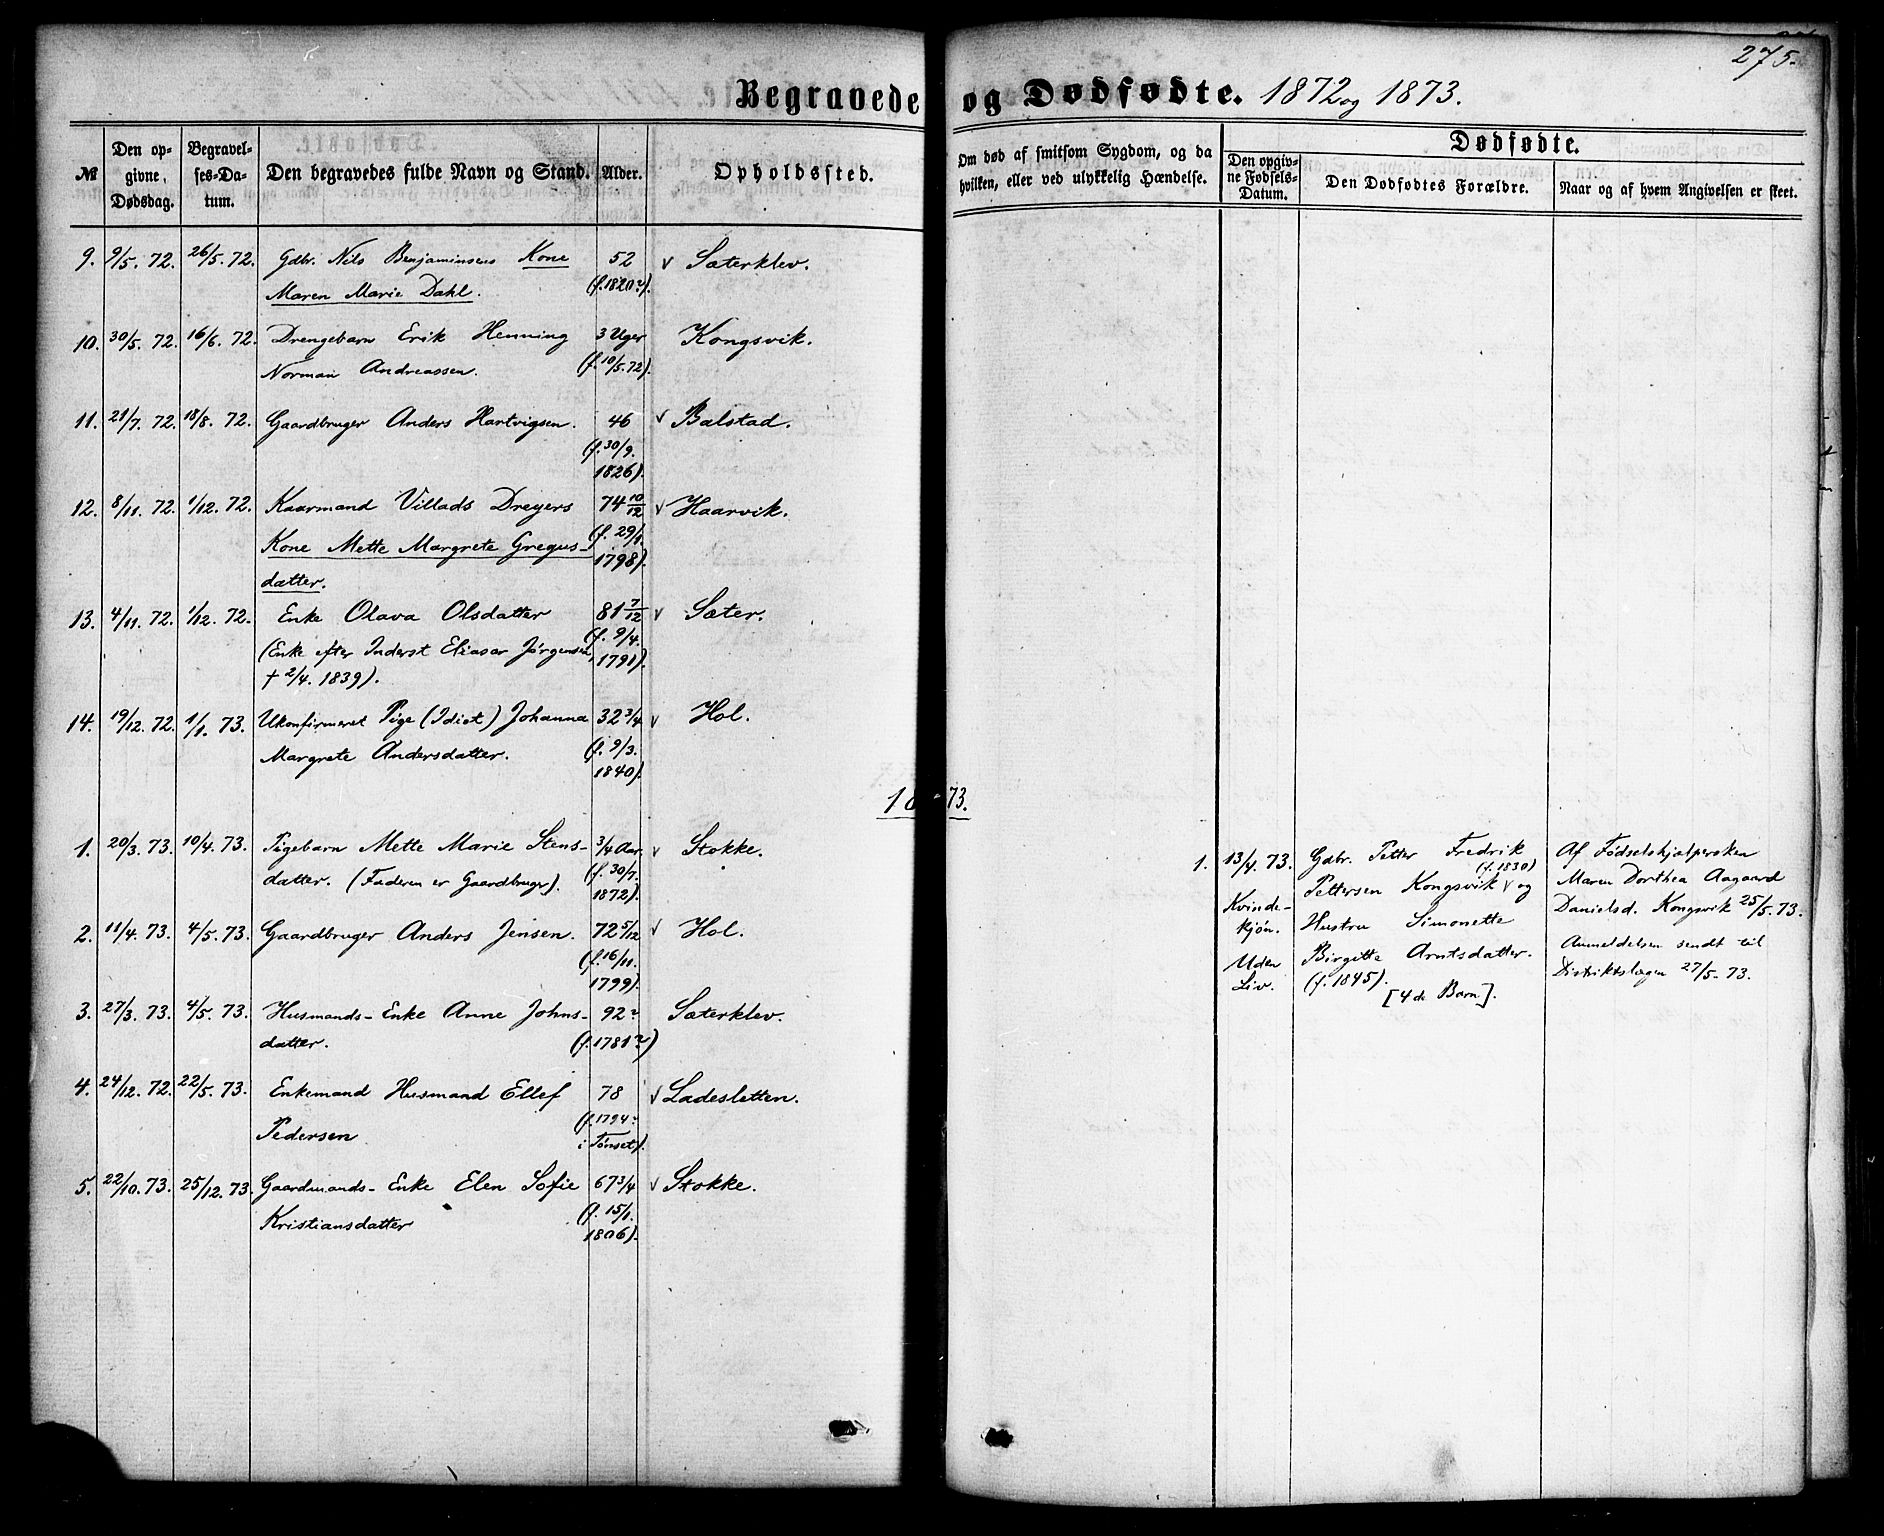 275.
Begravede og Dødfødte. 1872 og 1873.
№
Den opgivne Dødsdag.
Begravelses-Datum.
Den begravedes fulde Navn og Stand.
Alder.
Opholdssted.
Om død af smitsom Sygdom, og da
hvilken, eller ved ulykkelig Hændelse.
Dødfødte.
Den opgivne Fødsels-Datum.
Den Dødfødtes Forældre.
Naar og af hvem Angivelsen er skeet.
9. 9/5. 72. 26/5. 72. Gdbr. Nils Benjaminsens Kone 52 v Sæterklev.
Maren Marie Dahl. (f. 1820?).
10. 30/5. 72. 16/6. 72. Drengebarn Erik Henning 3 Uger Kongsvik.
Norman Andreassen. (f. 10/5. 72).
11. 21/7. 72. 18/8. 72. Gaardbruger Anders Hartvigsen. 46 v Balstad.
(f. 30/9.
1826).
12. 8/11. 72. 1/12. 72. Kaarmand Villads Dreyers 74 10/12 v Haarvik.
Kone Mette Margrete Gregus- (f. 29/1.
1798).
datter.
13. 4/11. 72. 1/12. 72. Enke Olava Olsdatter 81 7/12 v Sæter.
(Enke efter Inderst Eliasar Jørgensen, (f. 9/4.
1791).
† 2/4. 1839).
14. 19/12. 72. 1/1. 73. Ukonfirmeret Pige (Idiot) Johanna 32 3/4 v Hol.
Margrete Andersdatter. (f. 9/3.
1840).
1873.
1. 20/3. 73. 10/4. 73. Pigebarn Mette Marie Stens- 3/4 Aar. v Stokke.
datter. (Faderen er Gaardbruger). (f. 30/7.
1872).
2. 11/4. 73. 4/5. 73. Gaardbruger Anders Jensen. 72 5/12 v Hol.
(f. 16/11.
1799).
3. 27/3. 73. 4/5. 73. Husmands-Enke Anne Johns- 92? Sæterklev.
datter. (f. 1781?)
4. 24/12. 72. 22/5. 73. Enkemand Husmand Ellef 78 v Ladesletten.
Pedersen (f. 1794?
i Tønset).
5. 22/10. 73. 25/12. 73. Gaardmands-Enke Elen Sofie 67 3/4 v Stokke.
Kristiansdatter (f. 15/1.
1806).
1. 13/4. 73.
Kvinde-
kjøn.
Uden
Liv.
Gdbr. Petter Fredrik
(f. 1830)
Pettersen Kongsvik v og
Hustru Simonette
Birgitte Arntsdatter.
(f. 1845).
[4de Barn].
Af Fødselshjælpersken
Maren Dorthea Aagaard
Danielsd. Kongsvik 25/5. 73.
Anmeldelsen sendt til
Distriktslægen 27/5. 73.